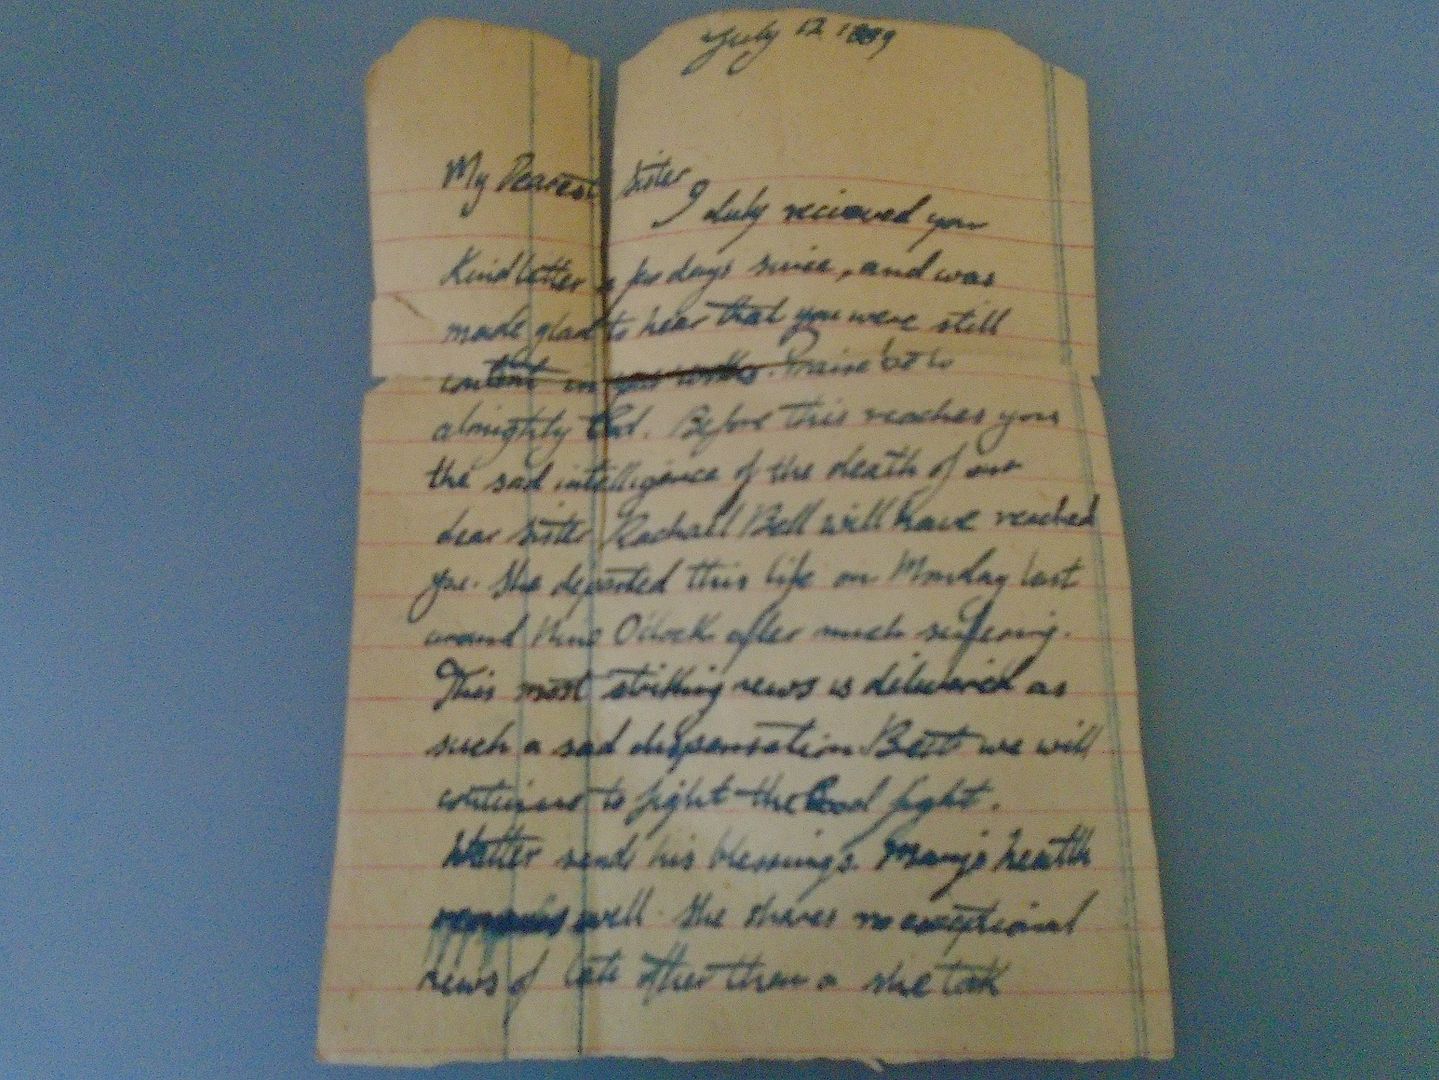 July 12 1889
My Dearest Sister
I duly recieved your
Kind letter a few days since, and was
made glad to hear that you were still
content in your works. Praise be to
almighty God. Before this reaches you
the sad intelligence of the death of our
dear sister Rachael Bell will have reached
you. She departed this life on Monday last
around Nine O'Clock after much suffering.
This most striking news is
such a sad dispensation. But we will
continue to fight the Good fight.
sends his blessings. Mary's health
well. She shares no exceptional
news of late other than a she